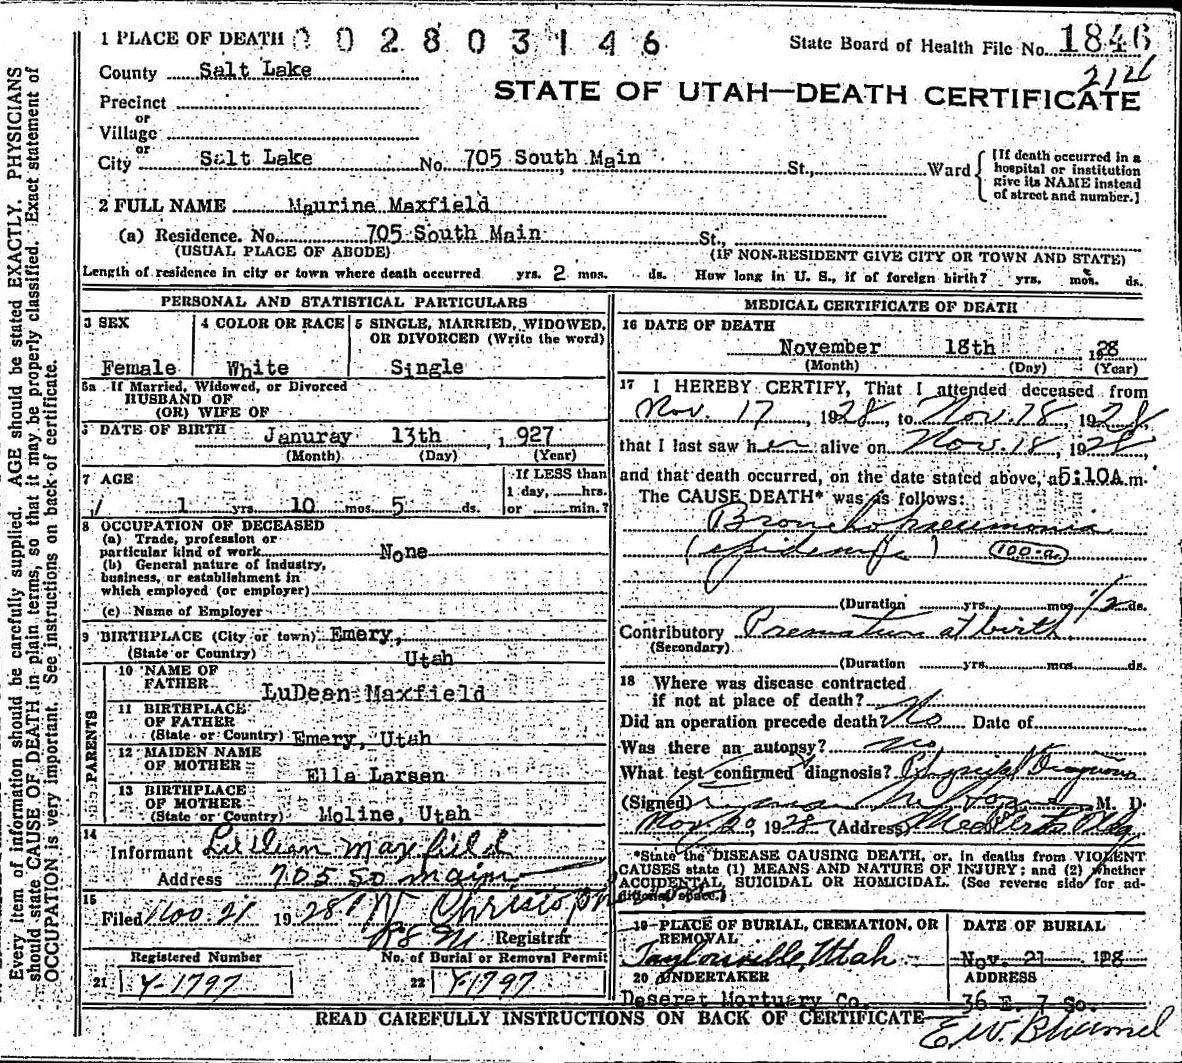 1 PLACE OF DEATH 0 0 2 8 0 3 1 4 6
State Board of Health File No. 1846
214
County Salt Lake
STATE OF UTAH—DEATH CERTIFICATE
Precinct
or
Village
or
City Salt Lake No. 705 South Main St., Ward
[If death occurred in a
hospital or institution
give its NAME instead
of street and number.]
2 FULL NAME Maurine Maxfield
(a) Residence. No. 705 South Main St.,
(USUAL PLACE OF ABODE) (IF NON-RESIDENT GIVE CITY OR TOWN AND STATE)
Length of residence in city or town where death occurred yrs. 2 mos. ds. How long in U. S., if of foreign birth? yrs. mos. ds.
PERSONAL AND STATISTICAL PARTICULARS
3 SEX
Female
4 COLOR OR RACE
White
5 SINGLE, MARRIED, WIDOWED,
OR DIVORCED (Write the word)
Single
5a If Married, Widowed, or Divorced
HUSBAND OF
(OR) WIFE OF
6 DATE OF BIRTH Januray 13th , 1927
(Month) (Day) (Year)
7 AGE
1 yrs. 10 mos. 5 ds.
If LESS than
1 day, hrs.
or min.?
8 OCCUPATION OF DECEASED
(a) Trade, profession or
particular kind of work None
(b) General nature of industry,
business, or establishment in
which employed (or employer)
(c) Name of Employer
9 BIRTHPLACE (City or town) Emery,
(State or Country) Utah
PARENTS
10 NAME OF
FATHER
LuDean Maxfield
11 BIRTHPLACE
OF FATHER
(State or Country) Emery, Utah
12 MAIDEN NAME
OF MOTHER
Ella Larsen
13 BIRTHPLACE
OF MOTHER
(State or Country) Moline, Utah
14
Informant Lillian Maxfield
Address 705 So Main
15
Filed Nov. 21 1928
Registrar
Registered Number
21 Y-1797
No. of Burial or Removal Permit
22 Y-1797
MEDICAL CERTIFICATE OF DEATH
16 DATE OF DEATH
November 18th 1928
(Month) (Day) (Year)
17 I HEREBY CERTIFY, That I attended deceased from
Nov. 17, 1928, to Nov. 18, 1928,
that I last saw her alive on Nov. 18, 1928,
and that death occurred, on the date stated above, at 5:10A.m.
The CAUSE DEATH* was as follows:
Broncho pneumonia
(epidemic) 100-a
(Duration yrs. mos. 1/2 ds.
Contributory Premature at birth
(Secondary)
(Duration yrs. mos. ds.
18 Where was disease contracted
if not at place of death?
Did an operation precede death? No Date of
Was there an autopsy? no
What test confirmed diagnosis? Physical Diagnosis
(Signed) M. D.
Nov. 20, 1928 (Address) Med Arts Bldg
*State the DISEASE CAUSING DEATH, or, in deaths from VIOLENT
CAUSES state (1) MEANS AND NATURE OF INJURY; and (2) whether
ACCIDENTAL, SUICIDAL OR HOMICIDAL. (See reverse side for ad-
ditional space.)
19 PLACE OF BURIAL, CREMATION, OR
REMOVAL
Taylorsville, Utah
DATE OF BURIAL
Nov. 21 1928
20 UNDERTAKER
Deseret Mortuary Co.
ADDRESS
36 E. 7 So.
READ CAREFULLY INSTRUCTIONS ON BACK OF CERTIFICATE
Every item of information should be carefully supplied. AGE should be stated EXACTLY. PHYSICIANS
should state CAUSE OF DEATH in plain terms, so that it may be properly classified. Exact statement of
OCCUPATION is very important. See instructions on back of certificate.